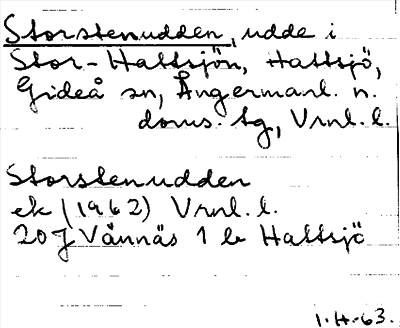 Storstenudden, udde i
Stor-Hattsjön, Hattsjö,
Gideå sn, Ångermanl. n.
doms. tg, Vrnl. l.
Storstenudden
ek (1962) Vrnl. l.
20J Vännäs 1 b Hattsjö
1.H.63.